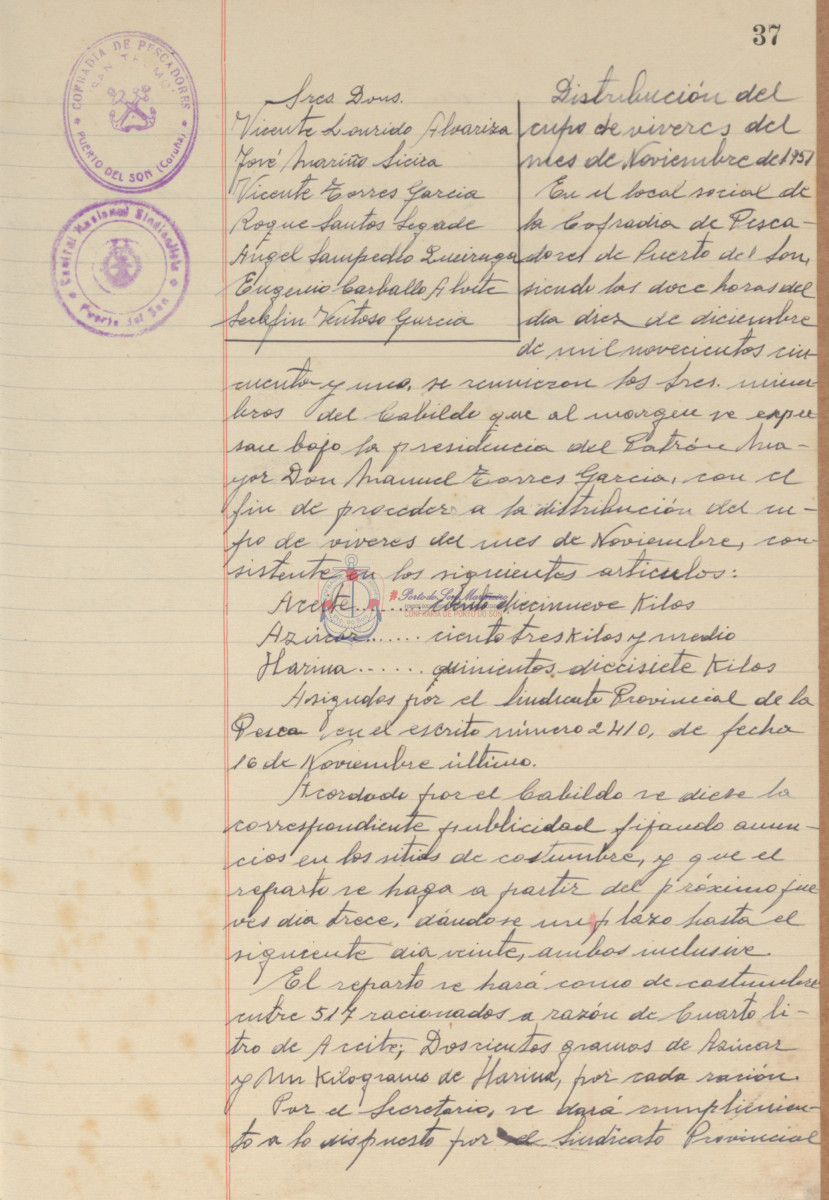 37
COFRADIA DE PESCADORES
"SAN TELMO"
PUERTO DEL SON (Coruña)
Comital Nacional Sindicalista
Puerto del Son
Sres. Dons.
Vicente Lourido Alvariza
José Mariño Sieira
Vicente Torres Garcia
Roque Santos Segade
Angel Sampedro Queiruga
Eugenio Carballo Alvite
Serafin Ventoso Garcia
Distribución del
cupo de viveres del
mes de Noviembre de 1951
En el local social de
la Cofradia de Pesca-
dores de Puerto del Son,
siendo las doce horas del
dia diez de diciembre
de mil novecientos cin
cuenta y uno, se reunieron los Sres. miem-
bros del Cabildo que al margen se expre
san bajo la presidencia del Patrón Ma-
yor Don Manuel Torres Garcia, con el
fin de proceder a la distribución del cu-
po de viveres del mes de Noviembre, con-
sistente en los siguientes articulos:
Aceite......... ciento diecinueve Kilos
Azúcar....... ciento tres Kilos y medio
Harina...... quinientos diecisiete Kilos
Asignados por el Sindicato Provincial de la
Pesca en el escrito número 2410, de fecha
16 de Noviembre último.
Acordado por el Cabildo se diese la
correspondiente publicidad fijando anun-
cios en los sitios de costumbre, y que el
reparto se haga a partir del próximo jue
ves dia trece, dándose un plazo hasta el
siguiente dia veinte, ambos inclusive.
El reparto se hará como de costumbre
entre 517 racionados a razón de Cuarto li-
tro de Aceite; Doscientos gramos de Azúcar
y Un Kilogramo de Harina, por cada ración.
Por el Secretario, se dará cumplimien-
to a lo dispuesto por el Sindicato Provincial
CONFRARÍA DE PORTO DO SON